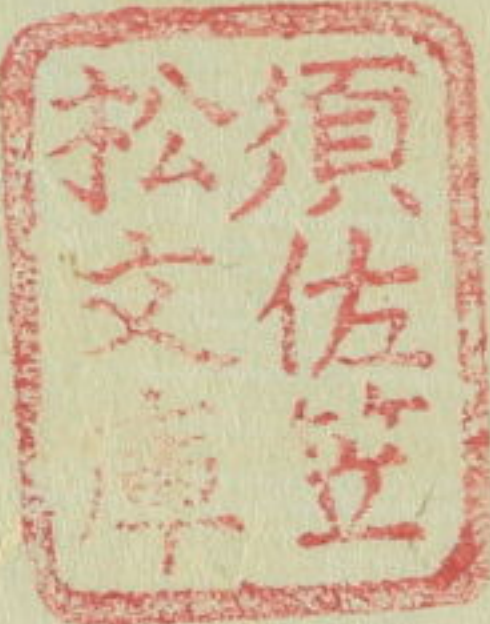 須佐笠
松文庫